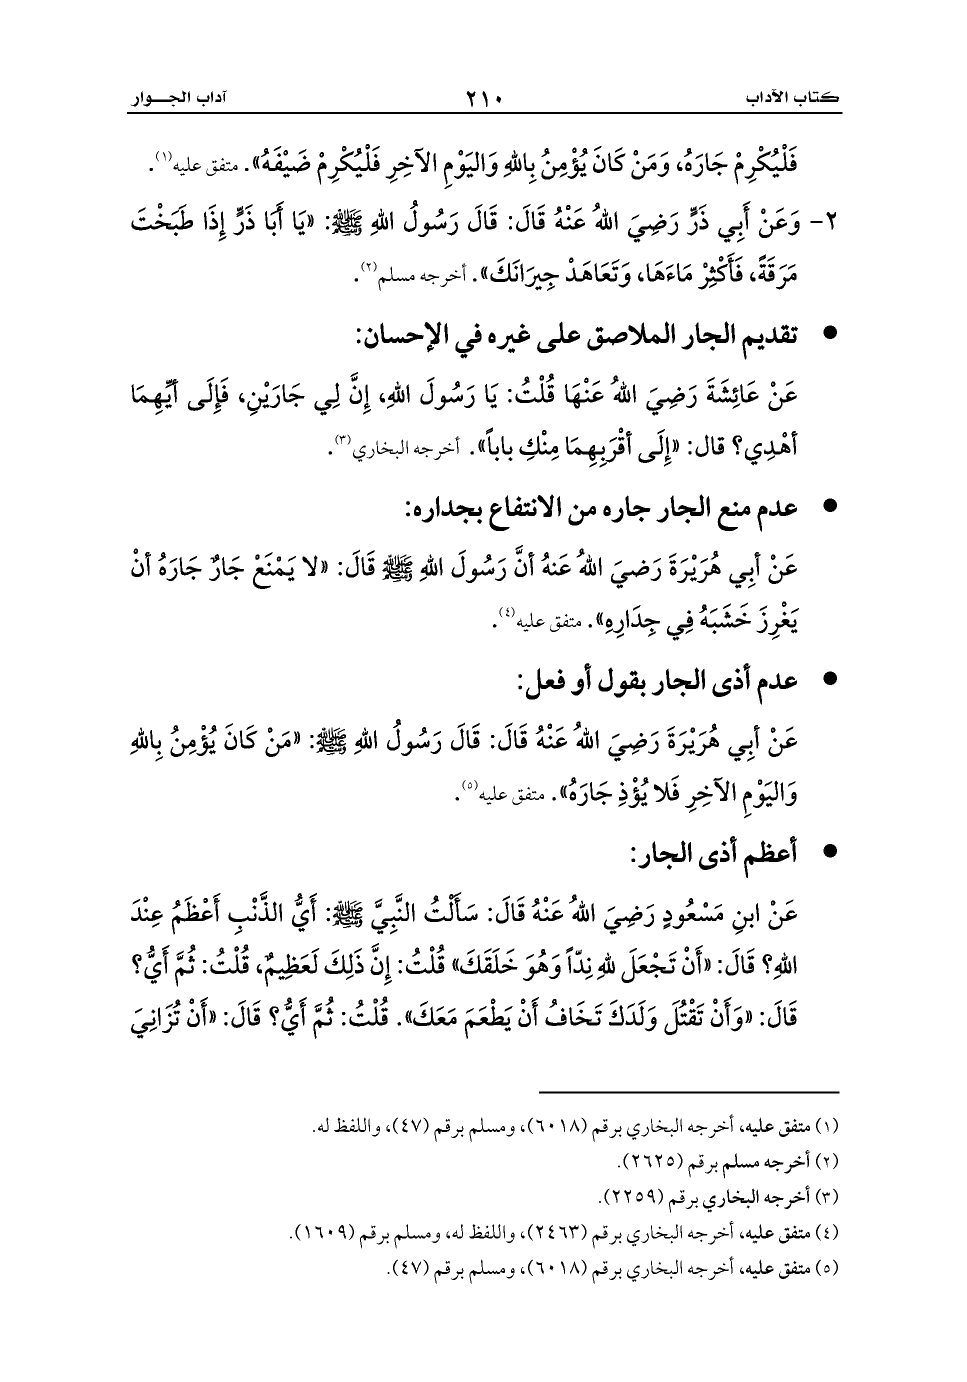 كتاب الآداب ٢١٠ آداب الجـــوار
فَلْيُكْرِمْ جَارَهُ، وَمَنْ كَانَ يُؤْمِنُ بِاللهِ وَاليَوْمِ الآخِرِ فَلْيُكْرِمْ ضَيْفَهُ». متفق عليه(١).
٢- وَعَنْ أَبِي ذَرٍّ رَضِيَ اللهُ عَنْهُ قَالَ: قَالَ رَسُولُ اللهِ ﷺ: «يَا أَبَا ذَرٍّ إِذَا طَبَخْتَ
مَرَقَةً، فَأَكْثِرْ مَاءَهَا، وَتَعَاهَدْ جِيرَانَكَ». أخرجه مسلم(٢).
• تقديم الجار الملاصق على غيره في الإحسان:
عَنْ عَائِشَةَ رَضِيَ اللهُ عَنْهَا قُلْتُ: يَا رَسُولَ اللهِ، إِنَّ لِي جَارَيْنِ، فَإِلَى أَيِّهِمَا
أهْدِي؟ قال: «إِلَى أقْرَبِهِمَا مِنْكِ باباً». أخرجه البخاري(٣).
• عدم منع الجار جاره من الانتفاع بجداره:
عَنْ أبِي هُرَيْرَةَ رَضيَ اللهُ عَنهُ أنَّ رَسُولَ اللهِ ﷺ قَالَ: «لا يَمْنَعْ جَارٌ جَارَهُ أنْ
يَغْرِزَ خَشَبَهُ فِي جِدَارِهِ». متفق عليه(٤).
• عدم أذى الجار بقول أو فعل:
عَنْ أبِي هُرَيْرَةَ رَضِيَ اللهُ عَنْهُ قَالَ: قَالَ رَسُولُ اللهِ ﷺ: «مَنْ كَانَ يُؤْمِنُ بِاللهِ
وَاليَوْمِ الآخِرِ فَلا يُؤْذِ جَارَهُ». متفق عليه(٥).
• أعظم أذى الجار:
عَنْ ابنِ مَسْعُودٍ رَضِيَ اللهُ عَنْهُ قَالَ: سَأَلْتُ النَّبِيَّ ﷺ: أَيُّ الذَّنْبِ أَعْظَمُ عِنْدَ
اللهِ؟ قَالَ: «أَنْ تَجْعَلَ للهِ نِدّاً وَهُوَ خَلَقَكَ» قُلْتُ: إِنَّ ذَلِكَ لَعَظِيمٌ، قُلْتُ: ثُمَّ أَيُّ؟
قَالَ: «وَأَنْ تَقْتُلَ وَلَدَكَ تَخَافُ أَنْ يَطْعَمَ مَعَكَ». قُلْتُ: ثُمَّ أَيُّ؟ قَالَ: «أَنْ تُزَانِيَ
(١) متفق عليه، أخرجه البخاري برقم (٦٠١٨)، ومسلم برقم (٤٧)، واللفظ له.
(٢) أخرجه مسلم برقم (٢٦٢٥).
(٣) أخرجه البخاري برقم (٢٢٥٩).
(٤) متفق عليه، أخرجه البخاري برقم (٢٤٦٣)، واللفظ له، ومسلم برقم (١٦٠٩).
(٥) متفق عليه، أخرجه البخاري برقم (٦٠١٨)، ومسلم برقم (٤٧).